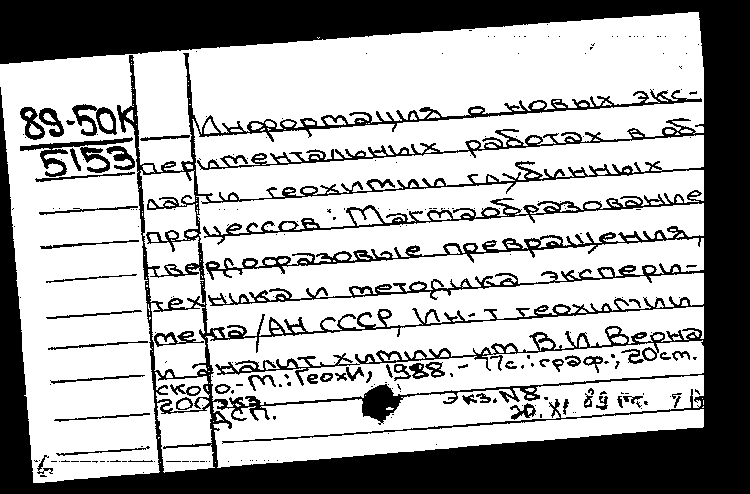 89-50К
5153
Информация о новых экс-
периментальных работах в об-
ласти геохимии глубинных
процессов: Магмаобразование
твердофазовые превращения,
техника и методика экспери-
мента /АН СССР, Ин-т геохимии
и аналит. химии им. В.И. Верна
ского.-М.: ГеохИ, 1988.- 77с.: граф.; 20 cm.
200 экз.
ДСП.
Экз.N8.
20. XI 89